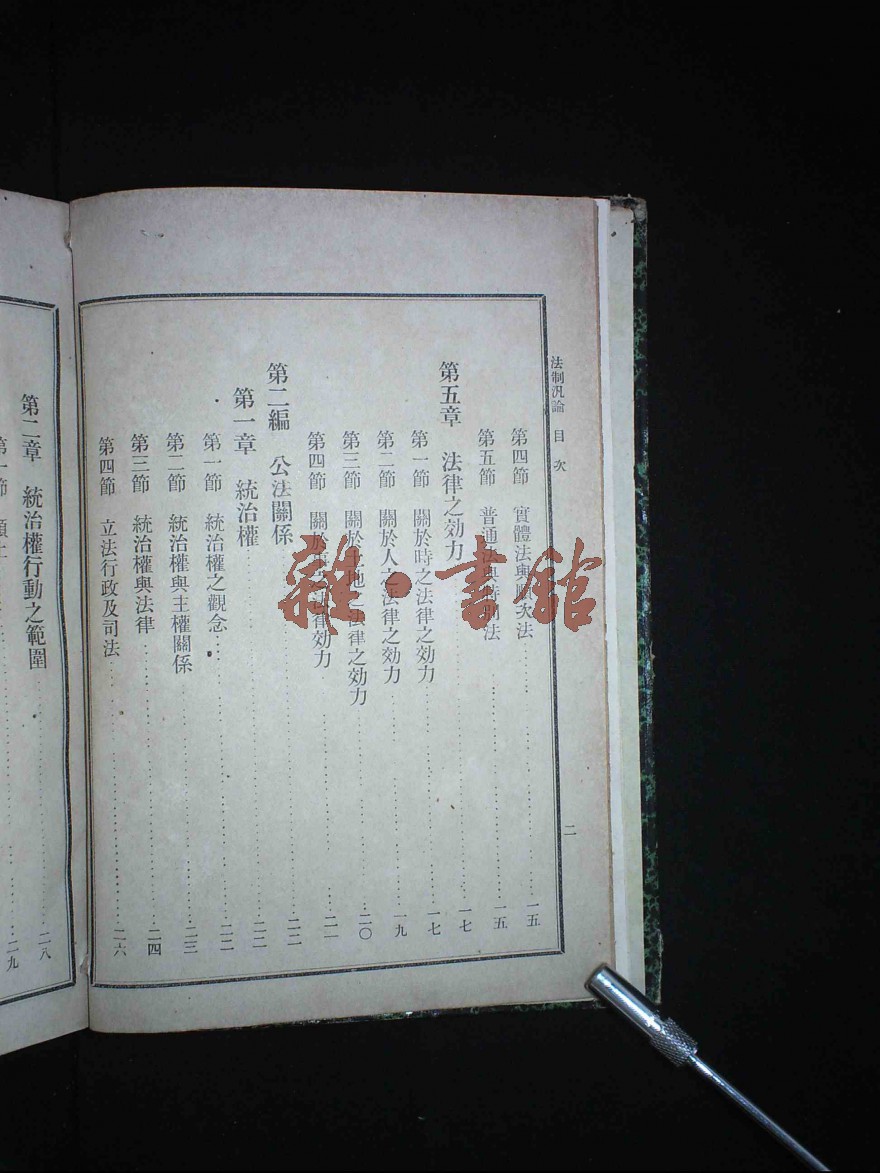 法制汎論 目次 二
第四節 實體法與 次法 一五
第五節 普通法與特別法 一五
第五章 法律之効力 一七
第一節 關於時之法律之効力 一七
第二節 關於人之法律之効力 一九
第三節 關於土地之法律之効力 二〇
第四節 關於 法律効力 二一
第二編 公法關係 二二
第一章 統治權 二二
第一節 統治權之觀念 二二
第二節 統治權與主權關係 二三
第三節 統治權與法律 二四
第四節 立法行政及司法 二六
第二章 統治權行動之範圍 二八
第一節 領土 二九
雜·書館